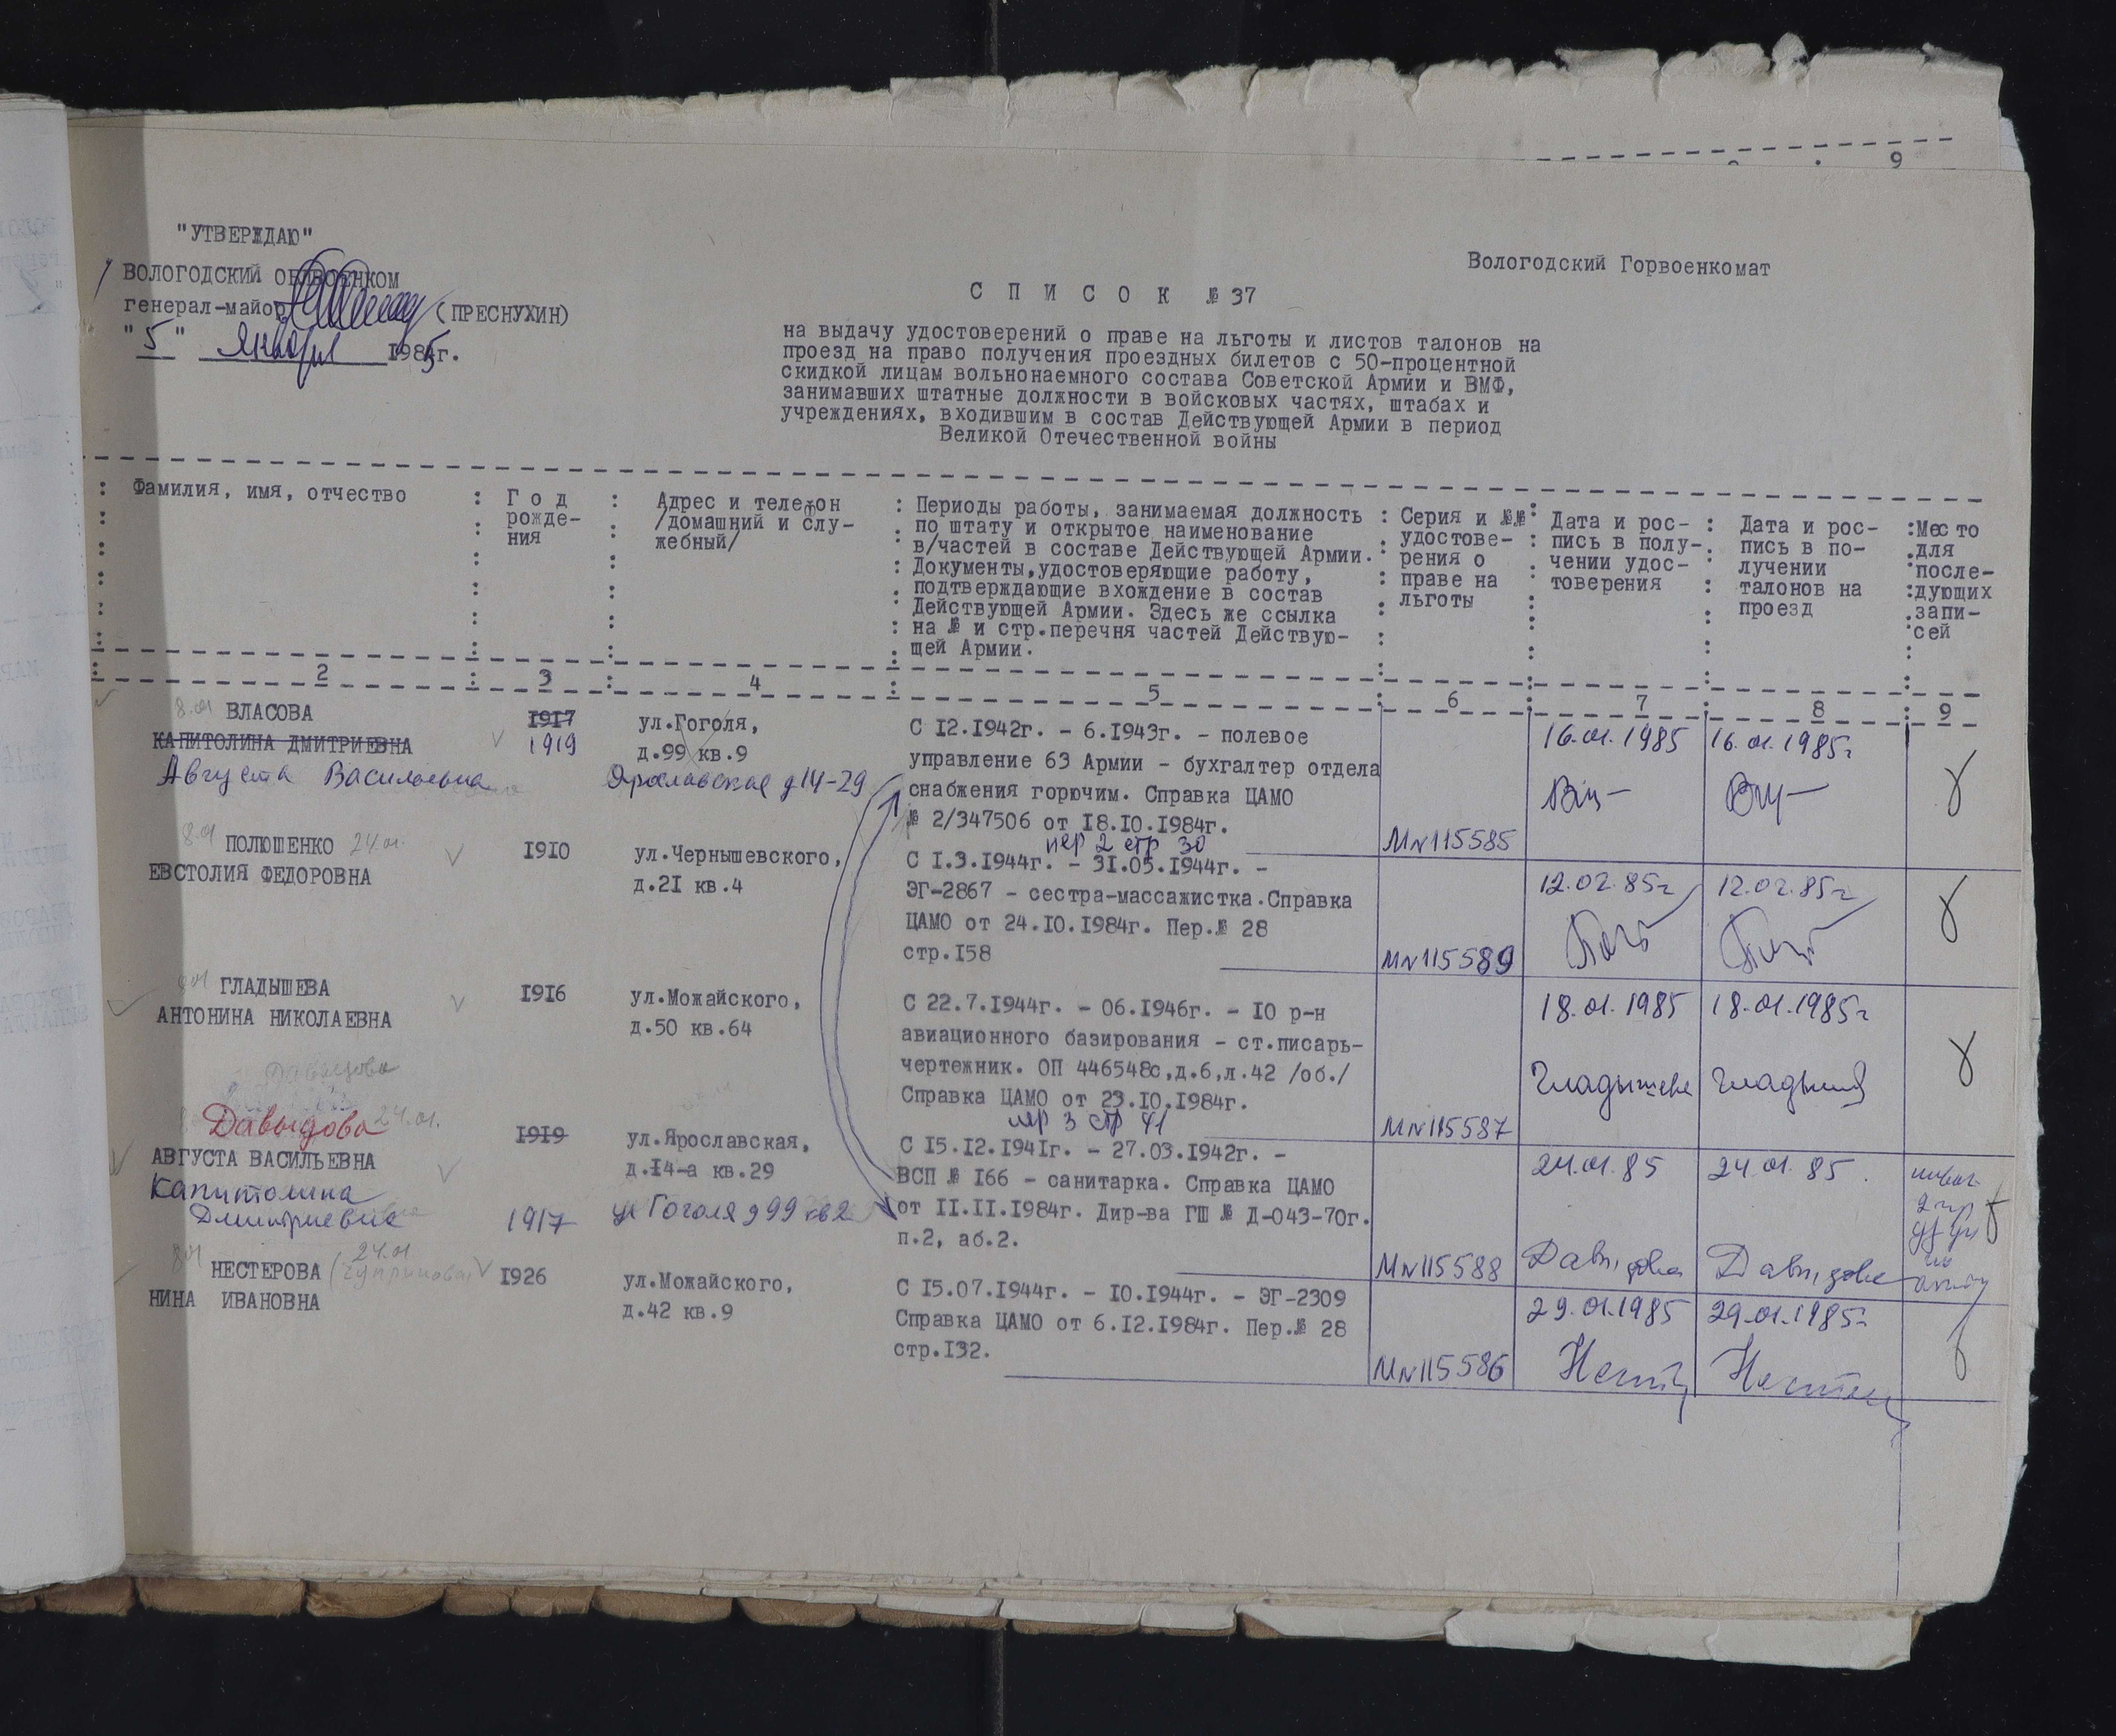 9
"УТВЕРЖДАЮ"
ВОЛОГОДСКИЙ ОБЛВОЕНКОМ
генерал-майор (ПРЕСНУХИН)
"5" Января 1985г.
Вологодский Горвоенкомат
С П И С О К № 37
на выдачу удостоверений о праве на льготы и листов талонов на
проезд на право получения проездных билетов с 50-процентной
скидкой лицам вольнонаемного состава Советской Армии и ВМФ,
занимавших штатные должности в войсковых частях, штабах и
учреждениях, входившим в состав Действующей Армии в период
Великой Отечественной войны
Фамилия, имя, отчество
Г о д
рожде-
ния
Адрес и телефон
/домашний и слу-
жебный/
Периоды работы, занимаемая должность
по штату и открытое наименование
в/частей в составе Действующей Армии.
Документы,удостоверяющие работу,
подтверждающие вхождение в состав
Действующей Армии. Здесь же ссылка
на № и стр.перечня частей Действую-
щей Армии.
Серия и №№
удостове-
рения о
праве на
льготы
Дата и рос-
пись в полу-
чении удос-
товерения
Дата и рос-
пись в по-
лучении
талонов на
проезд
Место
для
после-
дующих
запи-
сей
2 3 4 5 6 7 8 9
8.01 ВЛАСОВА
КАПИТОЛИНА ДМИТРИЕВНА
Августа Васильевна
1917
1919
ул.Гоголя,
д.99 кв.9
Ярославская д14-29
С 12.1942г. - 6.1943г. - полевое
управление 63 Армии - бухгалтер отдела
снабжения горючим. Справка ЦАМО
№ 2/347506 от 18.10.1984г.
пер 2 стр 30
МN115585
16.01.1985
16.01.1985г
8.01 ПОЛЮШЕНКО 24.01.
ЕВСТОЛИЯ ФЕДОРОВНА
1910
ул.Чернышевского,
д.21 кв.4
С 1.3.1944г. - 31.05.1944г. -
ЭГ-2867 - сестра-массажистка.Справка
ЦАМО от 24.10.1984г. Пер.№ 28
стр.158
МN115589
12.02.85г
12.02.85г
8.01 ГЛАДЫШЕВА
АНТОНИНА НИКОЛАЕВНА
1916
ул.Можайского,
д.50 кв.64
С 22.7.1944г. - 06.1946г. - 10 р-н
авиационного базирования - ст.писарь-
чертежник. ОП 446548с,д.6,л.42 /об./
Справка ЦАМО от 23.10.1984г.
пер 3 стр 41
МN115587
18.01.1985
Гладышева
18.01.1985г
Давыдова
Давыдова 24.01.
АВГУСТА ВАСИЛЬЕВНА
Капитолина
Дмитриевна
1919
1917
ул.Ярославская,
д.14-а кв.29
ул Гоголя д 99 кв 2
С 15.12.1941г. - 27.03.1942г. -
ВСП № 166 - санитарка. Справка ЦАМО
от 11.11.1984г. Дир-ва ГШ № Д-043-70г.
п.2, аб.2.
МN115588
24.01.85
Давыдова
24.01.85.
Давыдова
8.01 НЕСТЕРОВА 24.01
НИНА ИВАНОВНА
1926
ул.Можайского,
д.42 кв.9
С 15.07.1944г. - 10.1944г. - ЭГ-2309
Справка ЦАМО от 6.12.1984г. Пер.№ 28
стр.132.
МN115586
29.01.1985
29.01.1985г